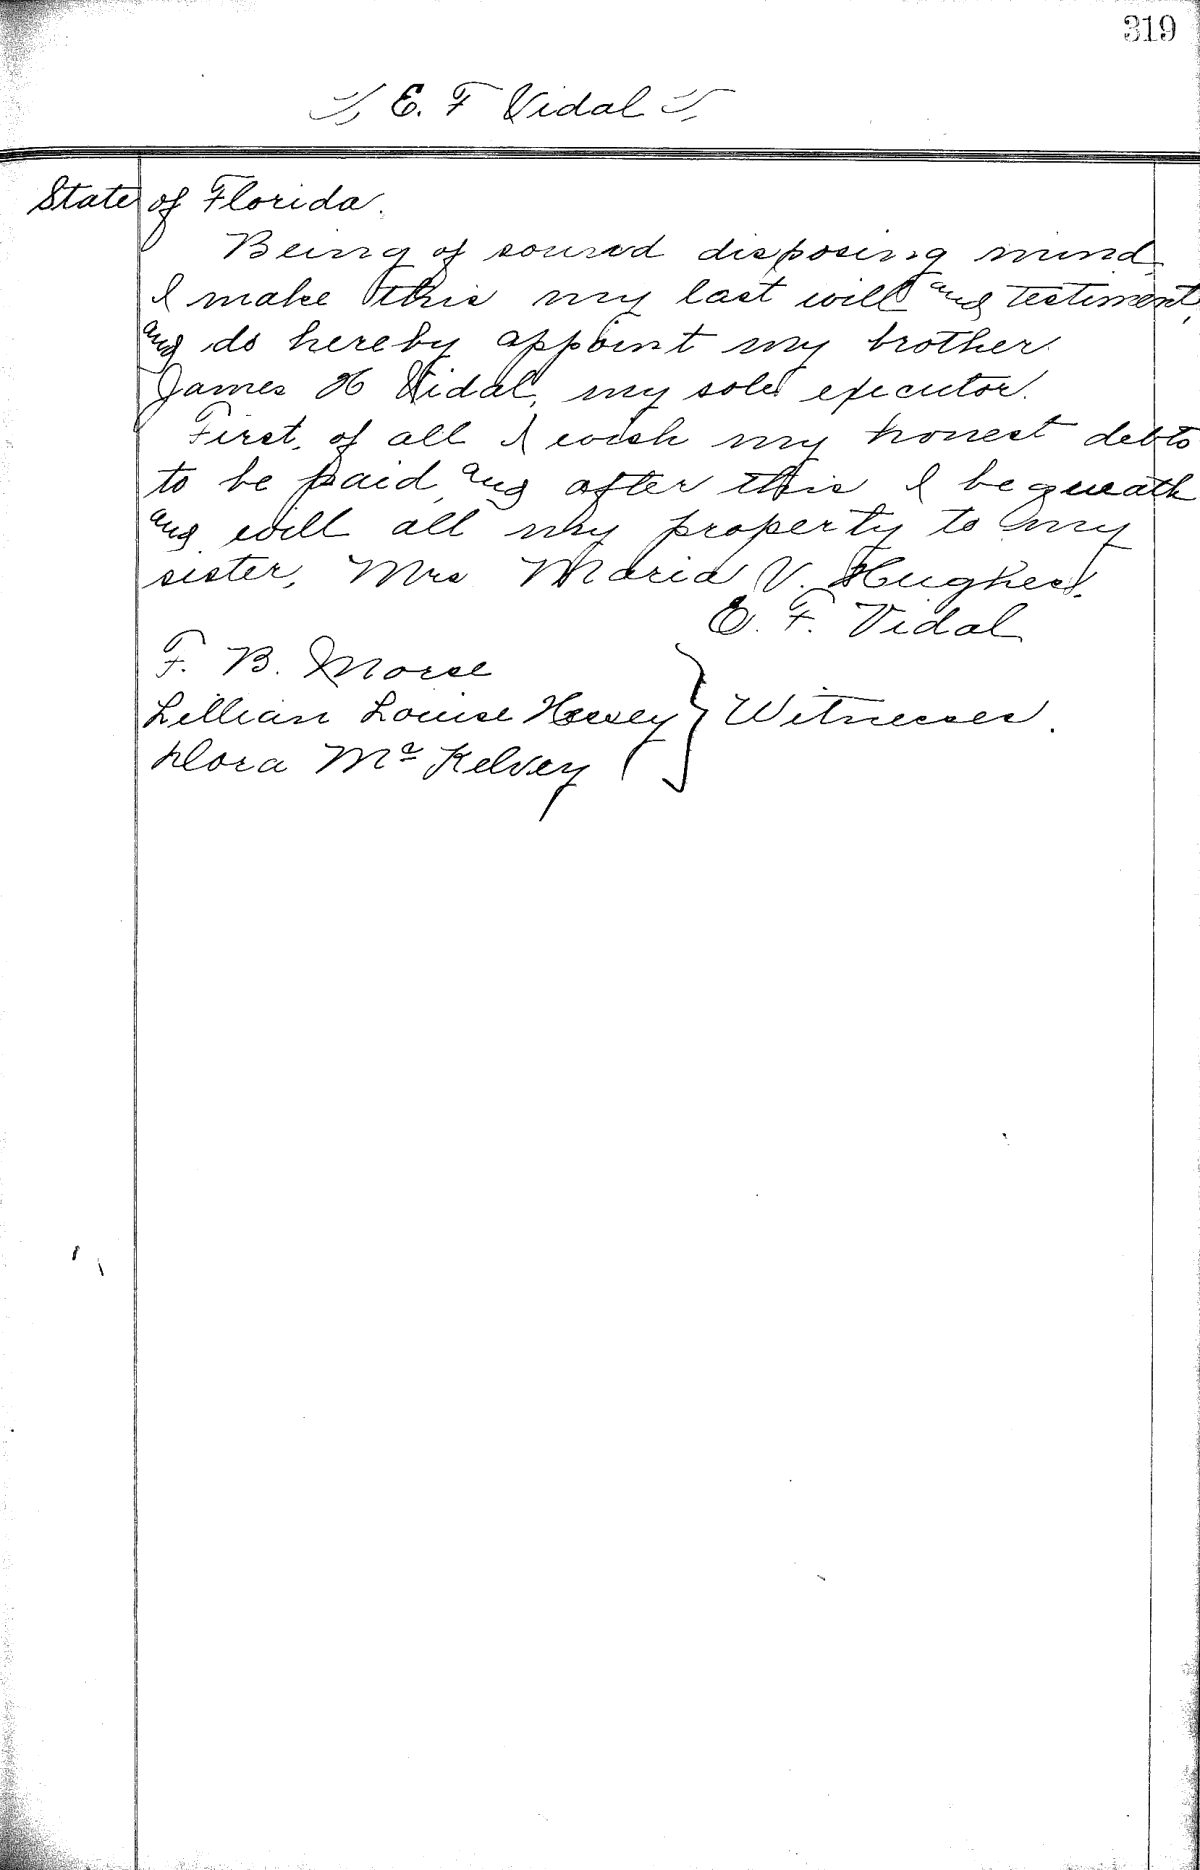 319
E. F Vidal
State of Florida.
Being of sound disposing mind,
I make this my last will and testiment,
and do hereby appoint my brother
James H Vidal, my sole executor.
First, of all I wish my honest debts
to be paid, and after this I bequeath
and will all my property to my
sister, Mrs Maria V. Hughes.
E. F. Vidal
F. B. Morse
Lillian Louise Hersey } Witnesses.
Flora Mc Kelvey